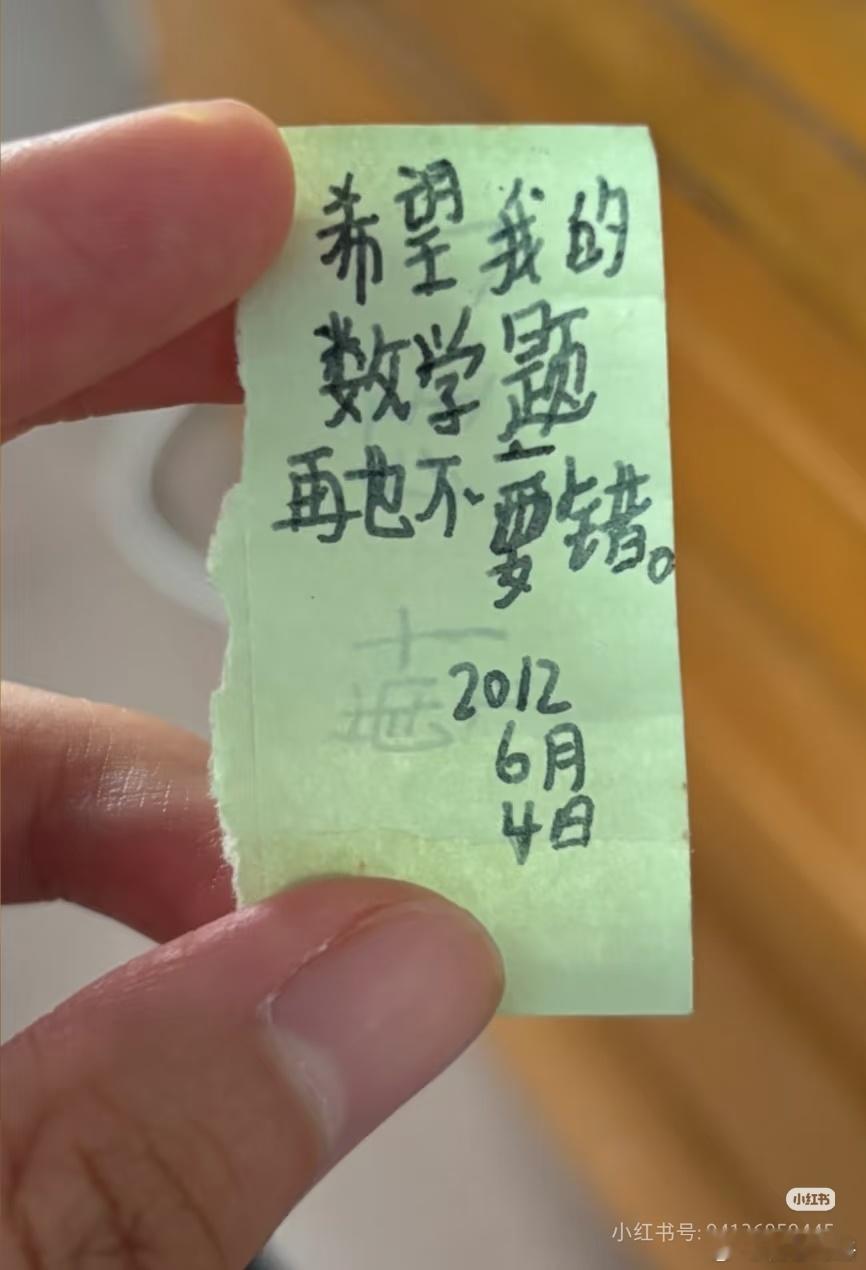 希望我的
数学题
再也不要错。
2012
6月
4日
小红书
小红书号: